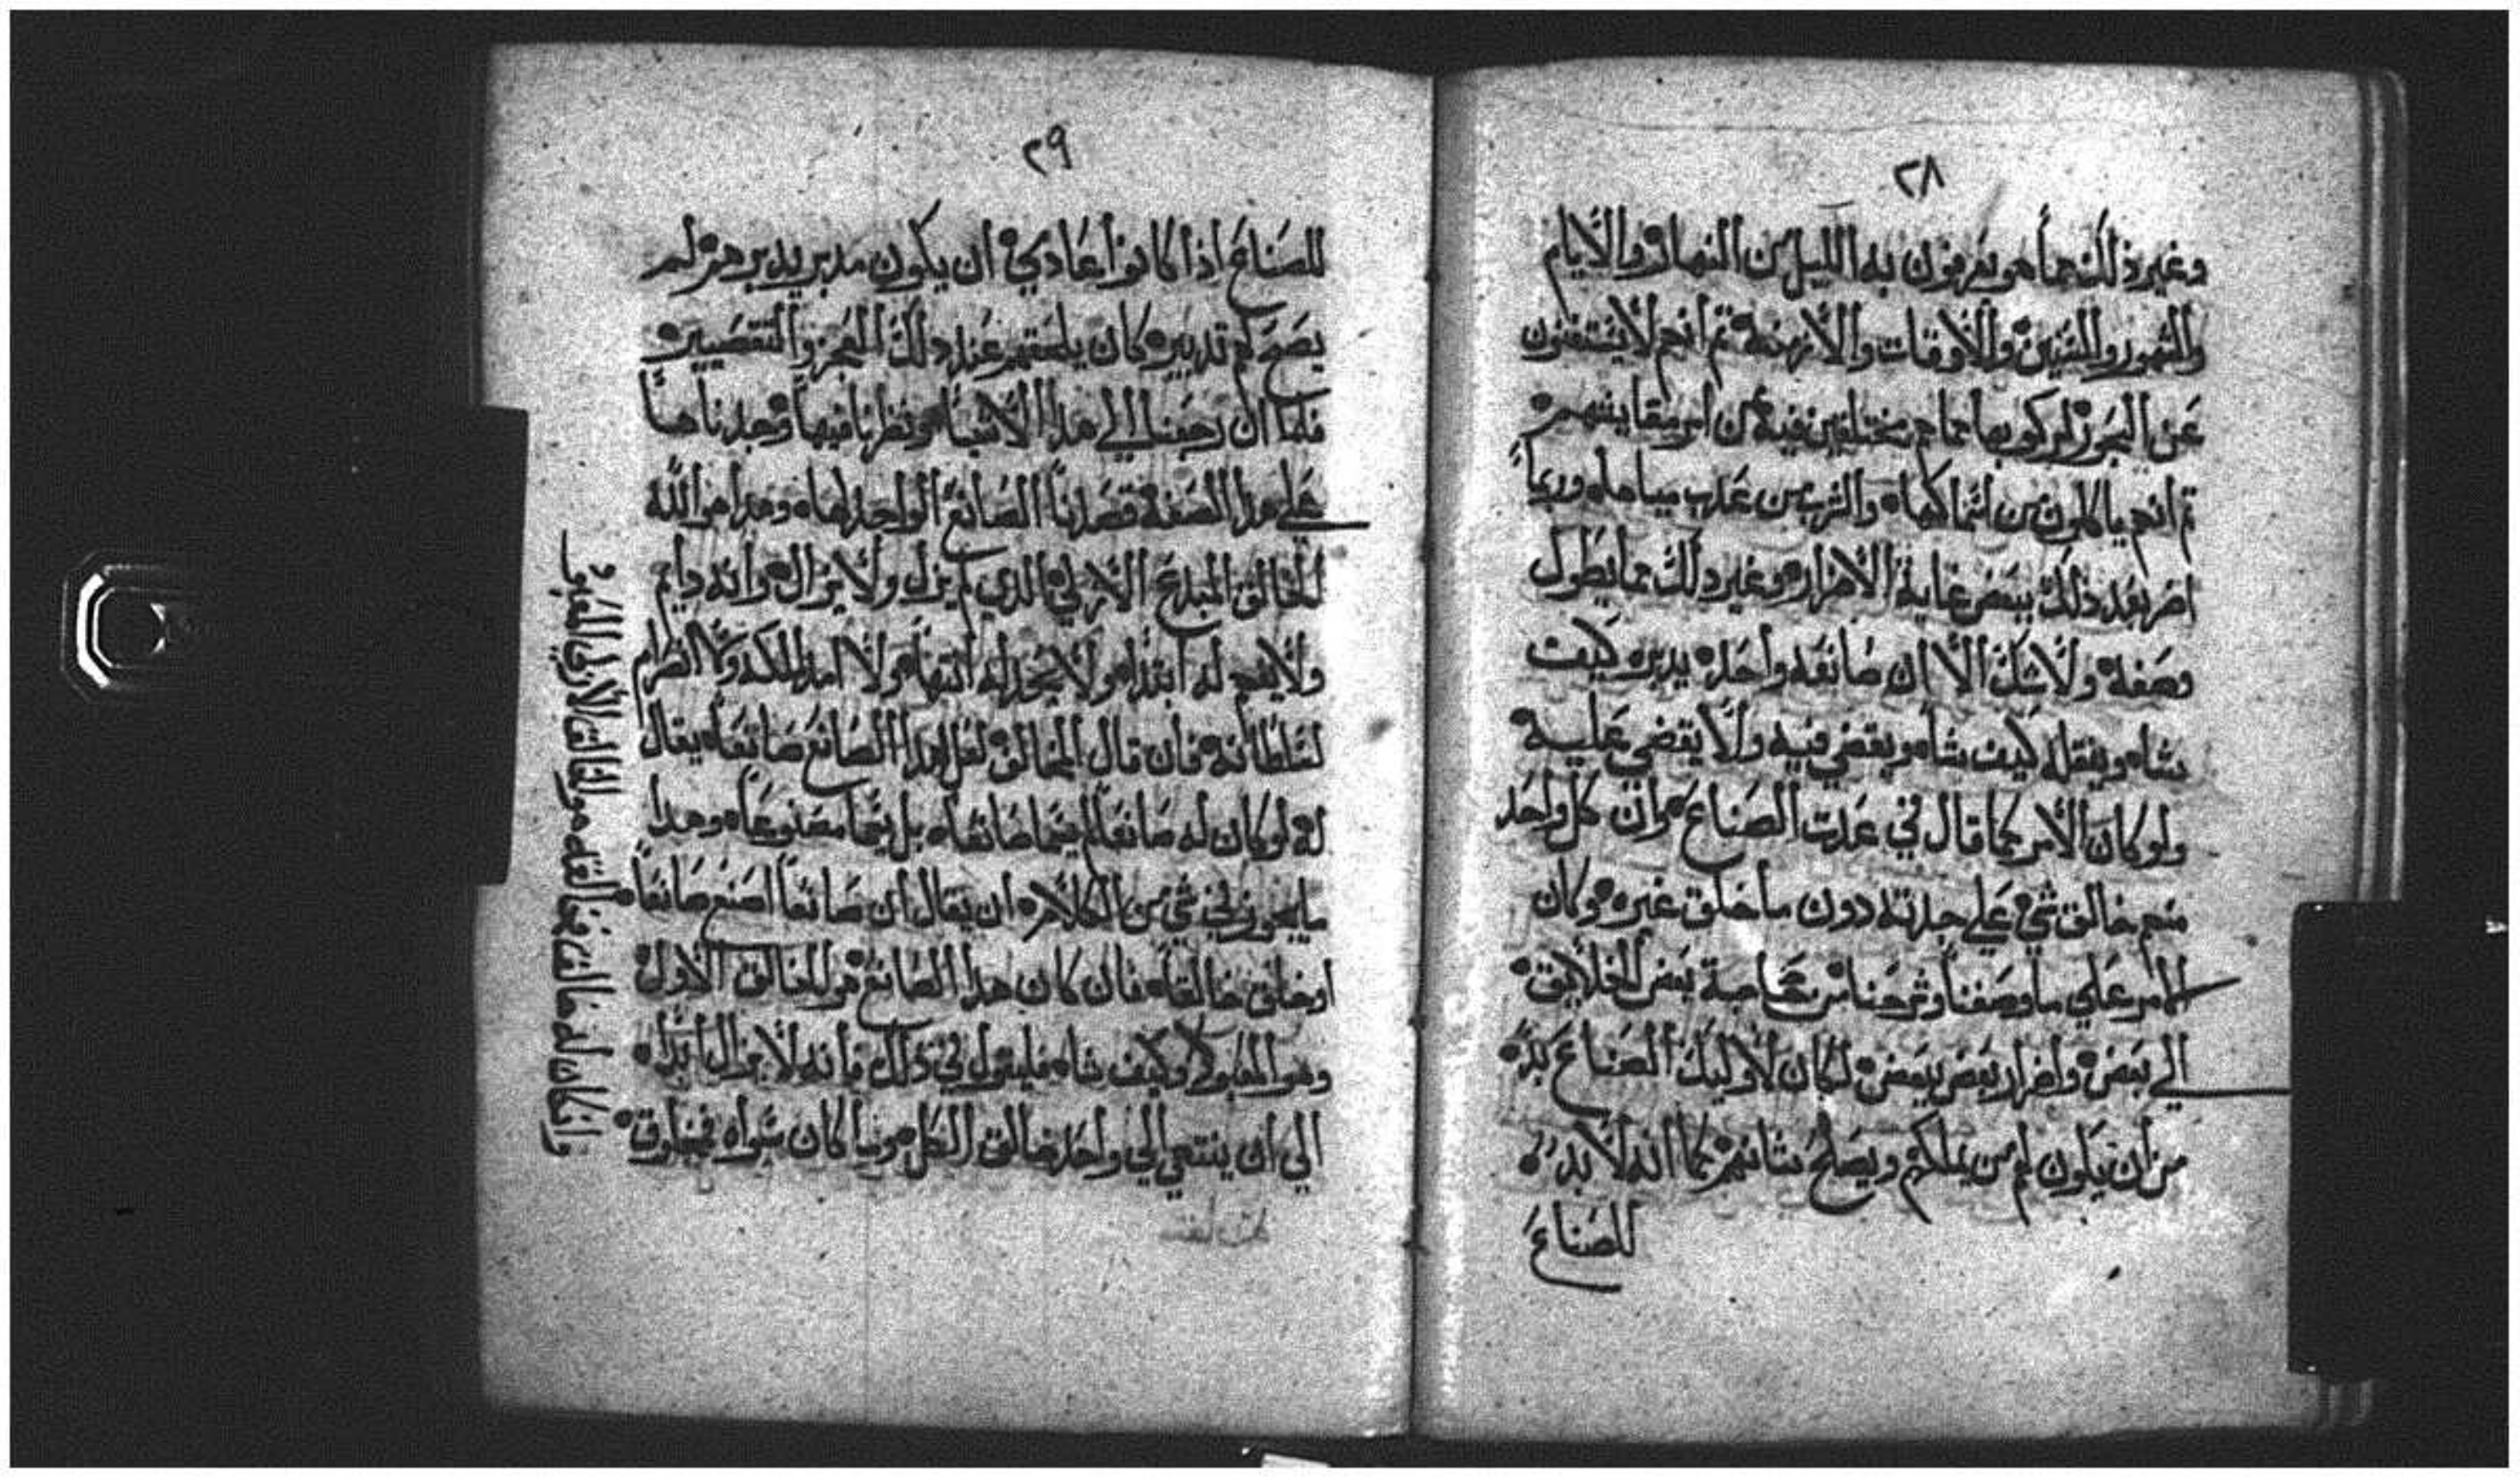 ٢٨
وغير ذلك مما هو يعرفون به الليل من النهار والأيام
والشهور والسنين والأوقات والأزمنة ثم انهم لا يستغنون
عن البحور لركوبها
ثم انهم ياكلون من اسماكها والشرب من عذب مياهه وربما
اضر بعد ذلك ببعض غاية الاضرار وغير ذلك مما يطول
وصفه ولا شك الا ان صانعه واحد يدبره كيف
شاء وينقله كيف شاء ويقضي فيه ولا يقضي عليه
ولو كان الأمر كما قال في عدت الصناع وان كل واحد
منهم خالق شي على جدته دون ما خلق غيره وكان
الامر علي ما وصفنا وشرحنا من حاجة بعض الخلايق
الي بعض واضرار بعض ببعض لكان لاوليك الصناع بد
من ان يكون لهم من يملكهم ويصلح شانهم كما انه لا بد
للصناع
٢٩
للصناع اذا كانوا اعادي ان يكون مدبر يدبرهم لم
يصح لهم تدبير كان يلحقهم عند ذلك العجز والتقصير
فلما ان رجعنا الي هذا الاشياء ونظرنا فيها وجدناها
على هذا الصفة قصدنا الصانع الواحد لها وهذا هو الله
الخالق المبدع الازلي الذي لم يزل ولا يزال وانه دايم
ولا يوجد له ابتداء ولا يجوز له انتهاء ولا امد لملكه ولا انصرام
لسلطانه فان قال المخالف لعل لهذا الصانع صانعاً يقال
له لو كان له صانعا لم يسما صانعاً بل يسما مصنوعاً وهذا
ما يجوز في شي من الكلام ان يقال ان صانعاً اصنع صانعاً
او خالق خالقاً فان كان هذا الصانع هو الخالق الأول
وهو المعلول وكيف شاء فليقول في ذلك فانه لا يزال ابداً
الي ان ينتهي الي واحد خالق الكل وما كان سواه فمخلوق
وان كان له خالق فخالقه هو الخالق الأزلي المعبود